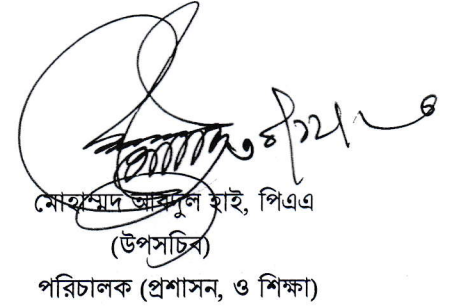 মোহাম্মদ আবদুল হাই, পিএএ
(উপসচিব)
পরিচালক (প্রশাসন, ও শিক্ষা)